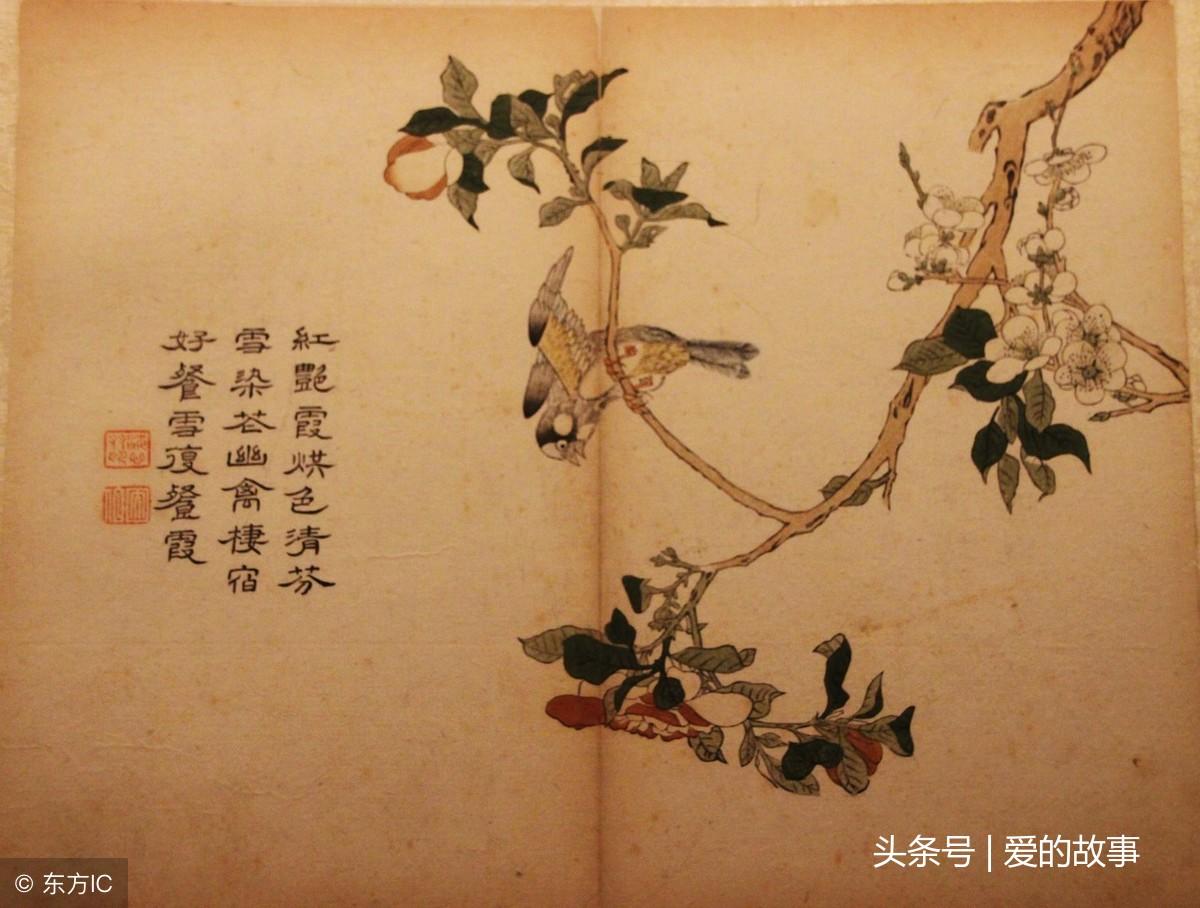 紅艷霞烘色清芬
雪染苍幽禽棲宿
好餐雪復餐霞
头条号 | 爱的故事
© 东方IC